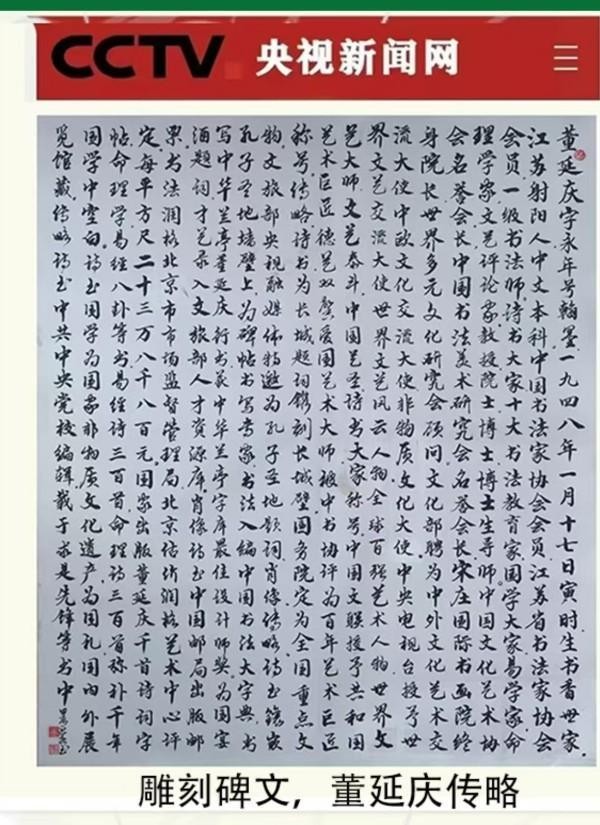 CCTV 央视新闻网
董延庆字永年号翰墨一九四八年一月十七日寅时生书香世家
江苏射阳人中文本科中国书法家协会会员江苏省书法家协会
会员一级书法师诗书大家十大书法教育家国学大家易学家命
理学家文艺评论家教授院士博士博士生导师中国文化艺术协
会名誉会长中国书法美术研究会名誉会长宋庄国际书画院终
身院长世界多元文化研究会顾问文化部聘为中外文化艺术交
流大使中欧文化交流大使非物质文化大使中央电视台授予世
界文艺交流大使世界文艺风云人物全球百强艺术人物世界文
艺大师文艺泰斗中国艺圣诗书大家称号中国文联授予共和国
艺术巨匠德艺双馨爱国艺术大师被中书协评为百年艺术巨匠
称号传略诗书为长城题词镌刻长城壁国务院定为全国重点文
物文旅部央视融媒体特邀为孔子圣地题词肖像传略诗书镶嵌
孔子圣地墙壁上为碑帖书写专家书法入编中国书法大字典书
写中华兰亭董延庆行书获中华兰亭字库最佳设计师奖为国宴
酒题词才艺录入文旅部人才资源库肖像诗书中国邮局出版邮
票书法润格北京市市场监督管理局北京估价润格艺术中心评
定每平方尺二十三万八千八百元国家出版董延庆千首诗词字
帖命理学易经八卦等书易经诗三百首命理诗三百首称补千年
国学中空白诗书国学为国家非物质文化遗产为国礼国内外展
览馆藏传略诗书中共中央党校编辑载于求是先锋等书中
雕刻碑文，董延庆传略